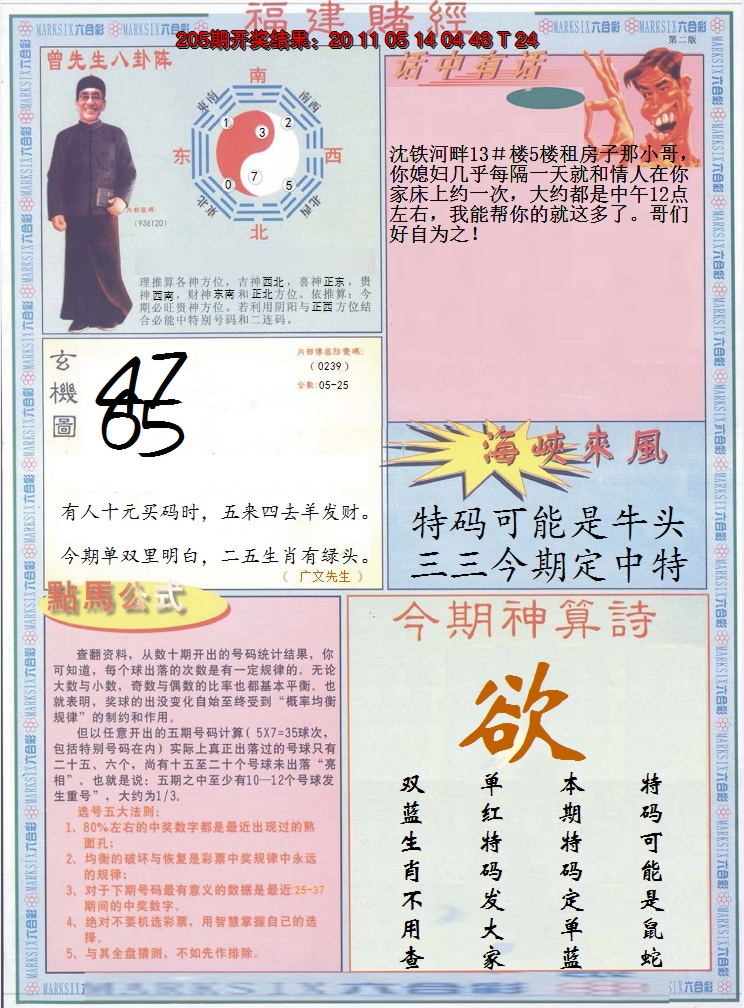 福建賭經
205期开奖结果: 20 11 05 14 04 48 T 24
第二版
曾先生八卦阵
南
东南
南西
1
2
3
东
西
7
0
5
东北
北西
北
内部密碼:
(936120)
理推算各神方位，吉神西北，喜神正东，贵
神西南，财神东南和正北方位。依推算：今
期必旺贵神方位。若利用阴阳与正西方位结
合必能中特别号码和二连码。
话中有话
沈铁河畔13＃楼5楼租房子那小哥，
你媳妇几乎每隔一天就和情人在你
家床上约一次，大约都是中午12点
左右，我能帮你的就这多了。哥们
好自为之！
玄機圖
47
65
内部傳器防僞碼:
(0239)
合數:05-25
有人十元买码时，五来四去羊发财。
今期单双里明白，二五生肖有绿头。
（ 广文先生 ）
海峽來風
特码可能是牛头
三三今期定中特
點馬公式
查翻资料，从数十期开出的号码统计结果，你
可知道，每个球出落的次数是有一定规律的。无论
大数与小数，奇数与偶数的比率也都基本平衡。也
就表明，奖球的出没变化自始至终受到“概率均衡
规律”的制约和作用。
但以任意开出的五期号码计算( 5X7=35球次，
包括特别号码在内) 实际上真正出落过的号球只有
二十五、六个，尚有十五至二十个号球未出落“亮
相”。也就是说：五期之中至少有10—12个号球发
生重号”，大约为1/3。
选号五大法则:
1、80%左右的中奖数字都是最近出现过的熟
面孔;
2、均衡的破坏与恢复是彩票中奖规律中永远
的规律;
3、对于下期号码最有意义的数据是最近25-37
期间的中奖数字。
4、绝对不要机选彩票，用智慧掌握自己的选
择。
5、与其全盘猜测，不如先作排除。
今期神算詩
欲
特码可能是鼠蛇
本期特码定单蓝
单红特码发大家
双蓝生肖不用查
MARKSIX六合彩